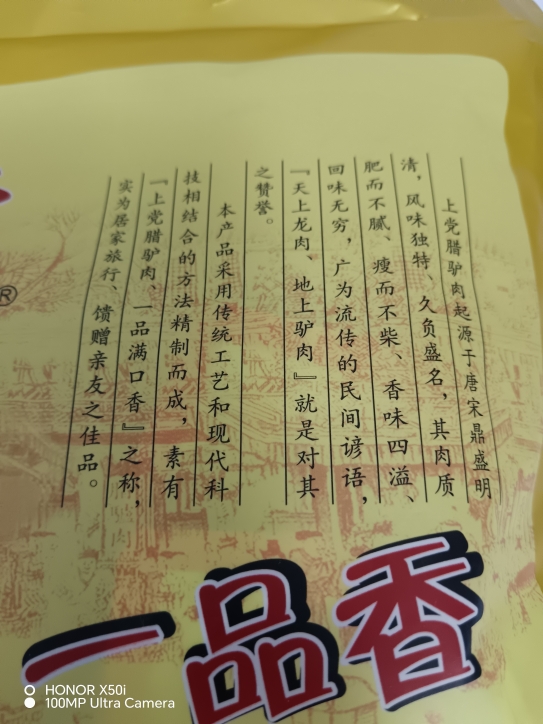 上党腊驴肉起源于唐宋鼎盛明
清，风味独特、久负盛名，其肉质
肥而不腻、瘦而不柴、香味四溢、
回味无穷，广为流传的民间谚语，
『天上龙肉、地上驴肉』就是对其
之赞誉。
本产品采用传统工艺和现代科
技相结合的方法精制而成，素有
『上党腊驴肉、一品满口香』之称，
实为居家旅行、馈赠亲友之佳品。
®
一品香
HONOR X50i
100MP Ultra Camera